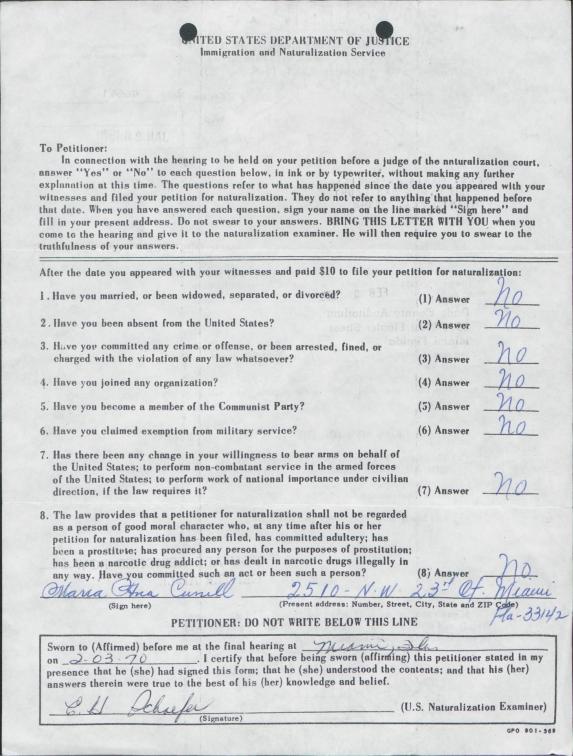 UNITED STATES DEPARTMENT OF JUSTICE
Immigration and Naturalization Service
To Petitioner:
In connection with the hearing to be held on your petition before a judge of the naturalization court,
answer "Yes" or "No" to each question below, in ink or by typewriter, without making any further
explanation at this time. The questions refer to what has happened since the date you appeared with your
witnesses and filed your petition for naturalization. They do not refer to anything that happened before
that date. When you have answered each question, sign your name on the line marked "Sign here" and
fill in your present address. Do not swear to your answers. BRING THIS LETTER WITH YOU when you
come to the hearing and give it to the naturalization examiner. He will then require you to swear to the
truthfulness of your answers.
After the date you appeared with your witnesses and paid $10 to file your petition for naturalization:
1. Have you married, or been widowed, separated, or divorced? (1) Answer No
2. Have you been absent from the United States? (2) Answer No
3. Have you committed any crime or offense, or been arrested, fined, or
charged with the violation of any law whatsoever? (3) Answer No
4. Have you joined any organization? (4) Answer No
5. Have you become a member of the Communist Party? (5) Answer No
6. Have you claimed exemption from military service? (6) Answer No
7. Has there been any change in your willingness to bear arms on behalf of
the United States; to perform non-combatant service in the armed forces
of the United States; to perform work of national importance under civilian
direction, if the law requires it? (7) Answer No
8. The law provides that a petitioner for naturalization shall not be regarded
as a person of good moral character who, at any time after his or her
petition for naturalization has been filed, has committed adultery; has
been a prostitute; has procured any person for the purposes of prostitution;
has been a narcotic drug addict; or has dealt in narcotic drugs illegally in
any way. Have you committed such an act or been such a person? (8) Answer No.
Maria Ana 2510-N.W 23rd Miami
Fla-33142
(Sign here) (Present address: Number, Street, City, State and ZIP Code)
PETITIONER: DO NOT WRITE BELOW THIS LINE
Sworn to (Affirmed) before me at the final hearing at Miami, Fla
on 2-03-70. I certify that before being sworn (affirming) this petitioner stated in my
presence that he (she) had signed this form; that he (she) understood the contents; and that his (her)
answers therein were true to the best of his (her) knowledge and belief.
C.H Schaefer (U.S. Naturalization Examiner)
(Signature)
GPO 901-368